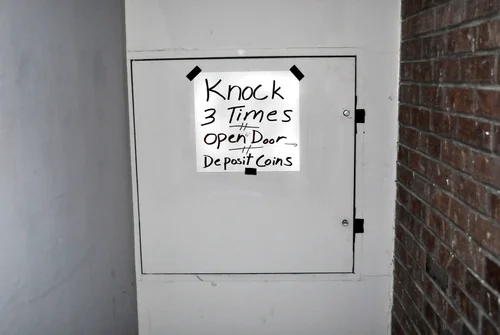 Knock
3 Times
Open Door
Deposit Coins